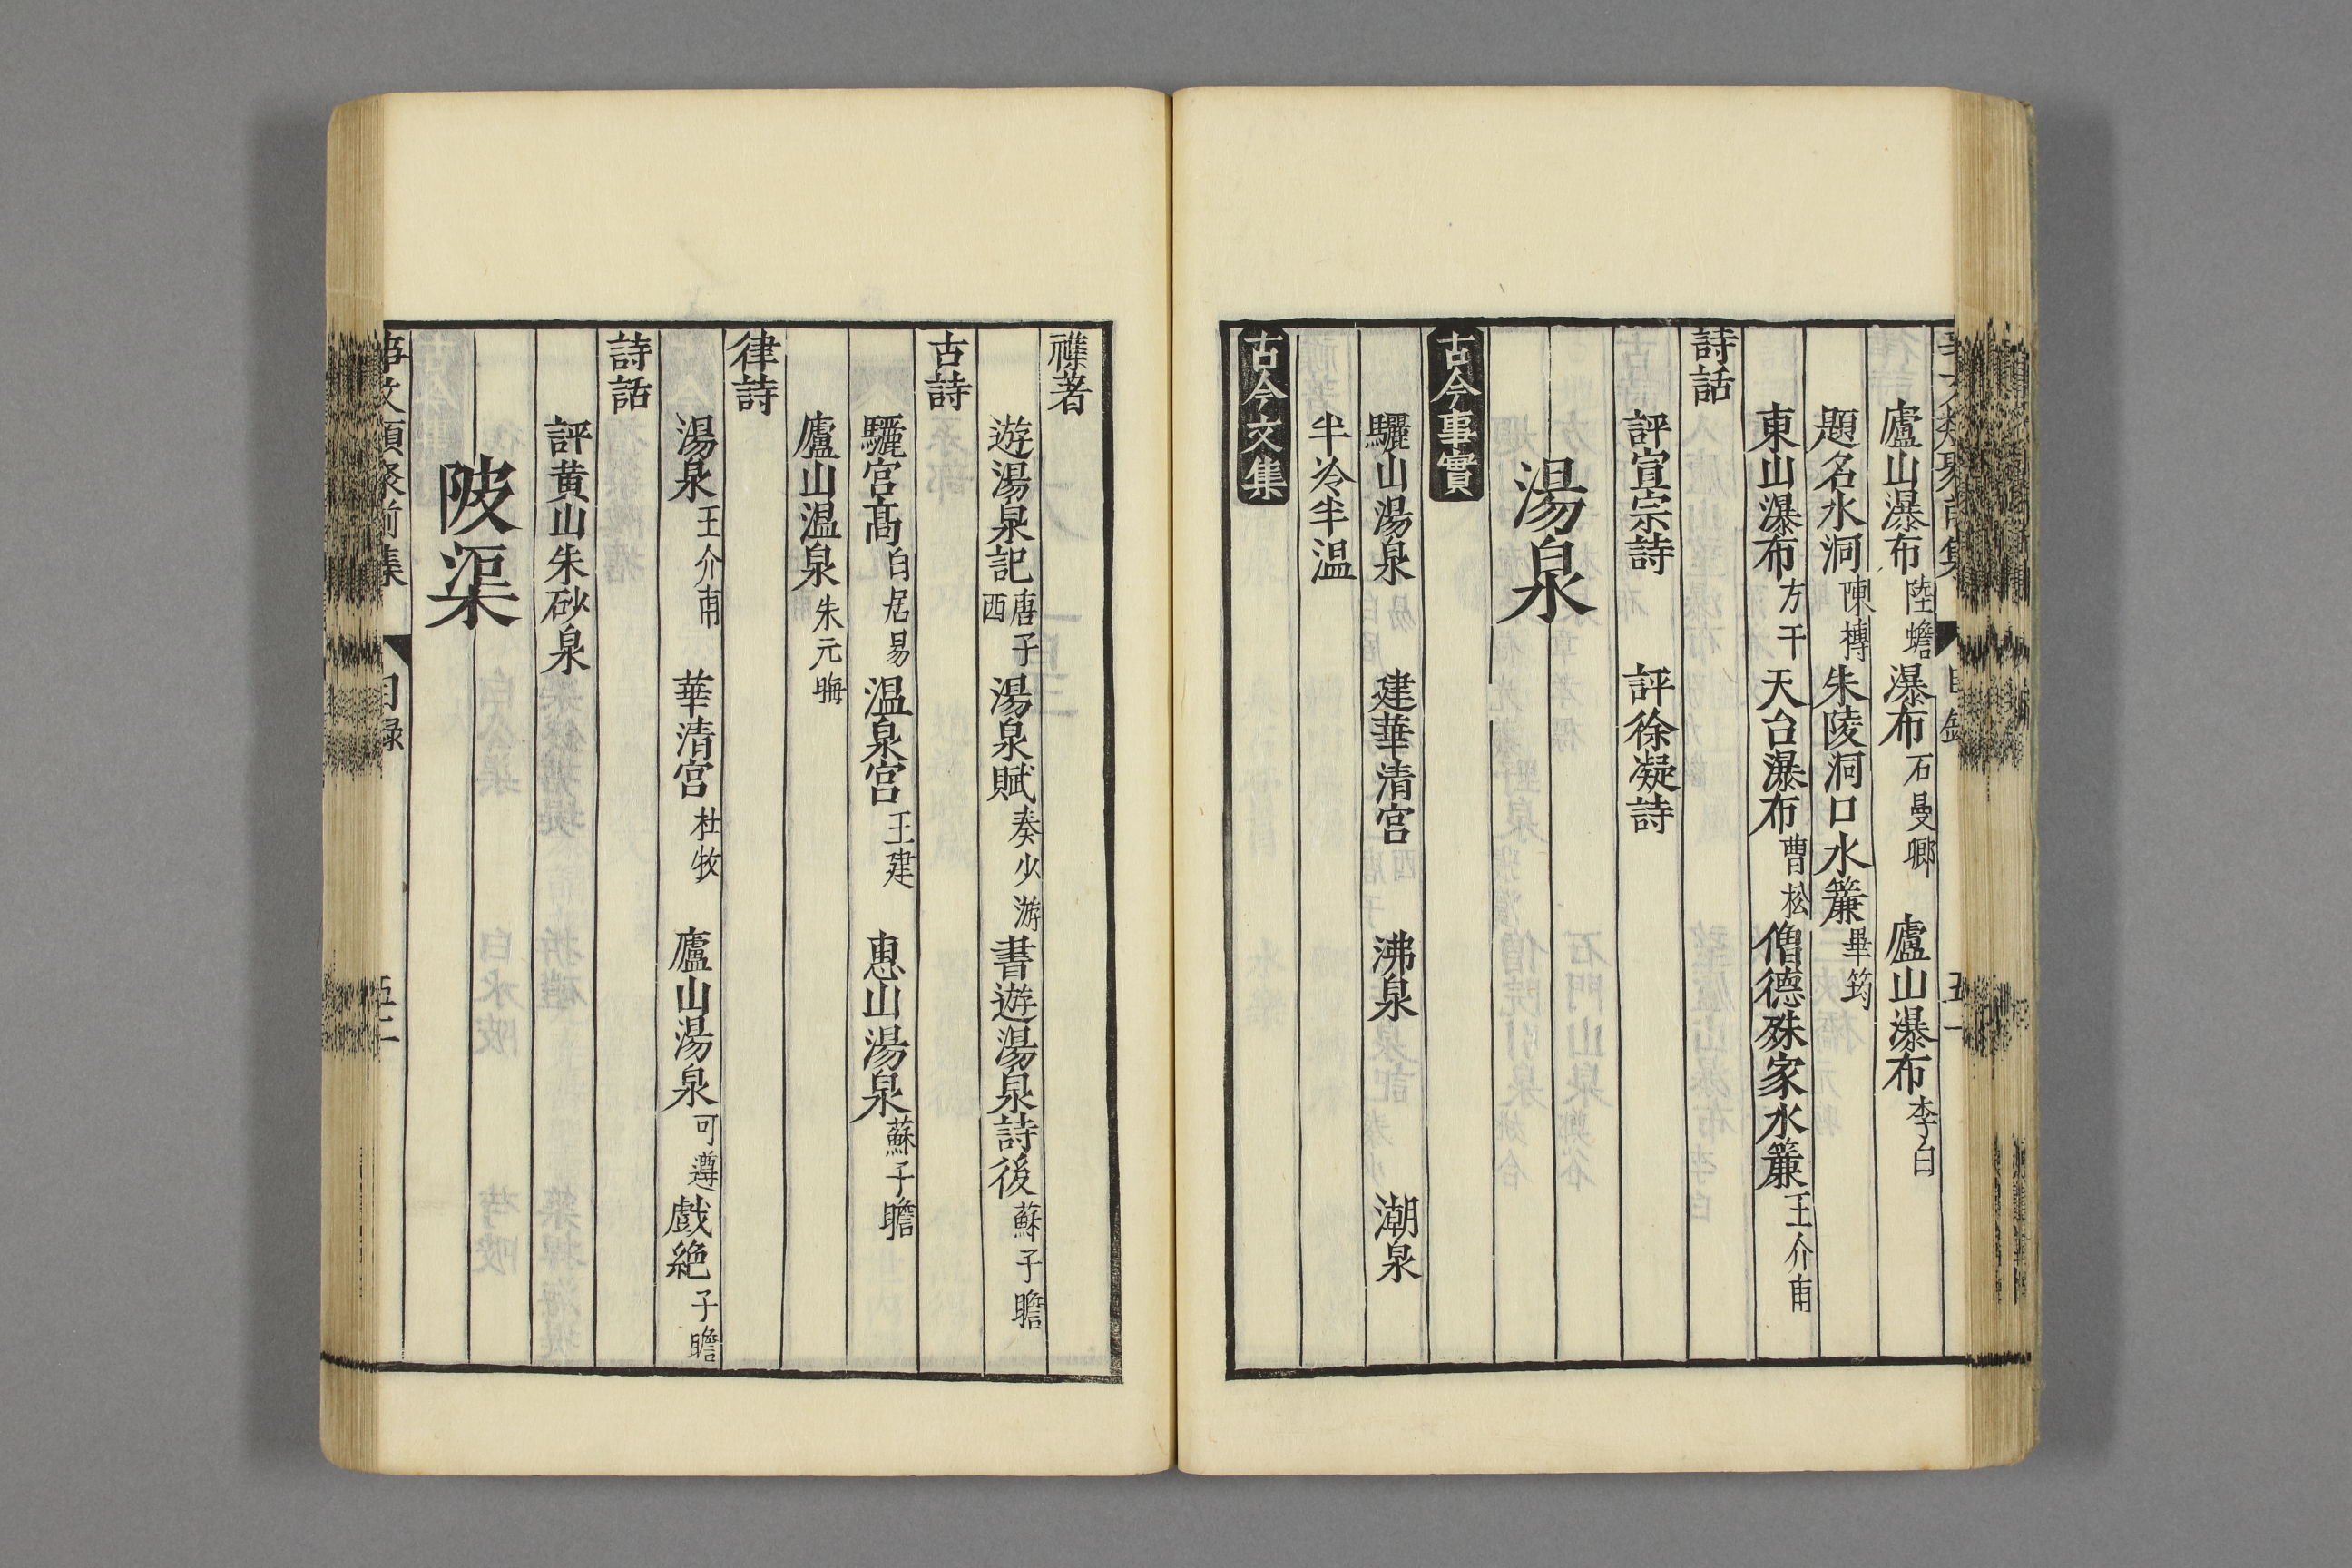 廬山瀑布 陸蟾 瀑布 石曼卿 廬山瀑布 李白
題名水洞 陳摶 朱陵洞口水簾 畢筠
東山瀑布 方干 天台瀑布 曹松 僧德殊家水簾 王介甫
詩話
評宣宗詩 評徐凝詩
湯泉
古今事實
驪山湯泉 建華清宮 沸泉 潮泉
半冷半温
古今文集
襍著
遊湯泉記 唐子西 湯泉賦 秦少游 書遊湯泉詩後 蘇子瞻
古詩
驪宮髙 白居易 温泉宮 王建 惠山湯泉 蘇子瞻
廬山温泉 朱元晦
律詩
湯泉 王介甫 華清宮 杜牧 廬山湯泉 可遵 戯絶 子瞻
詩話
評黄山朱砂泉
陂渠
事文類聚前集 目録 五二